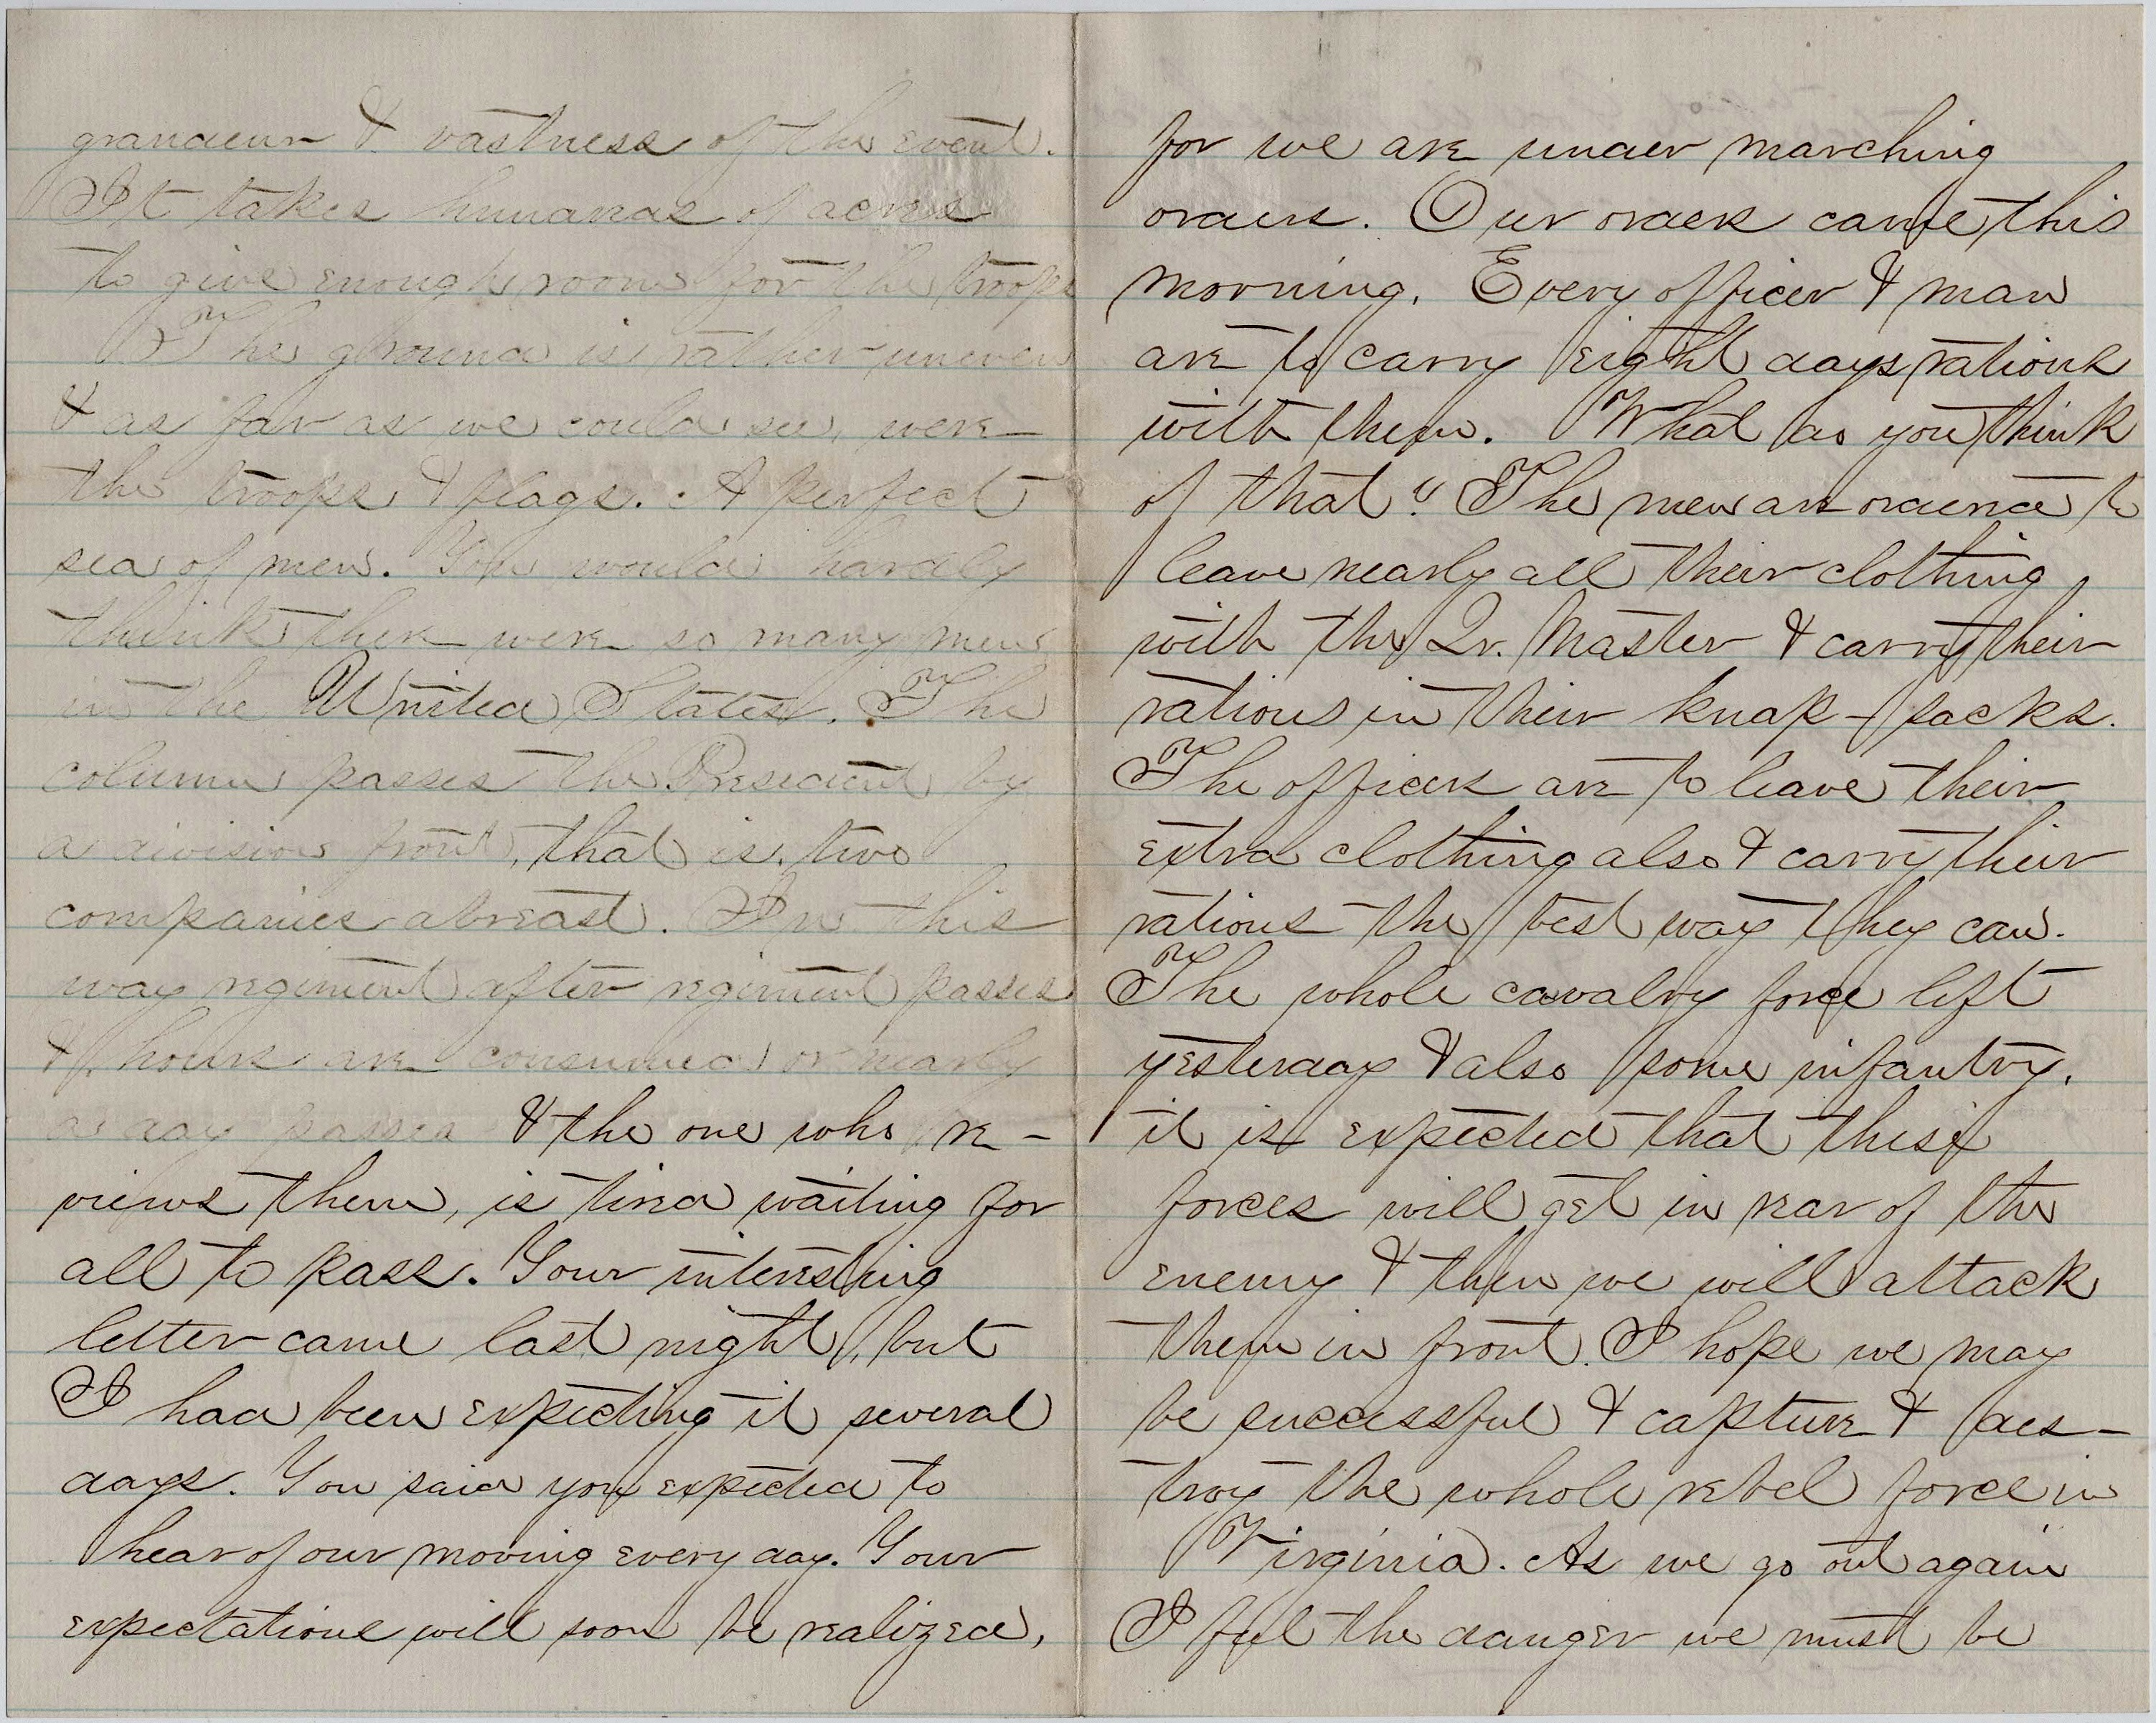 grandeur & vastness of the event.
It takes hundreds of acres
to give enough room for the troops
The ground is rather uneven
& as far as we could see, were
the troops & flags. A perfect
sea of men. You would hardly
think there were so many men
in the United States. The
column passes the President by
a division front, that is, two
companies abreast. In this
way regiment after regiment passes
& hours are consumed or nearly
a day passes & the one who re-
views them, is tired waiting for
all to pass. Your interesting
letter came last night, but
I had been expecting it several
days. You said you expected to
hear of our moving every day. Your
expectations will soon be realized,
for we are under marching
orders. Our orders came this
morning. Every officer & man
are to carry eight days rations
with them. What do you think
of that? The men are ordered to
leave nearly all their clothing
with the Qr. Master & carry their
rations in their knap-sacks.
The officers are to leave their
extra clothing also & carry their
rations the best way they can.
The whole cavalry force left
yesterday & also some infantry.
it is expected that these
forces will get in rear of the
enemy & then we will attack
them in front. I hope we may
be successful & capture & des-
troy the whole rebel force in
Virginia. As we go out again
I feel the danger we must be